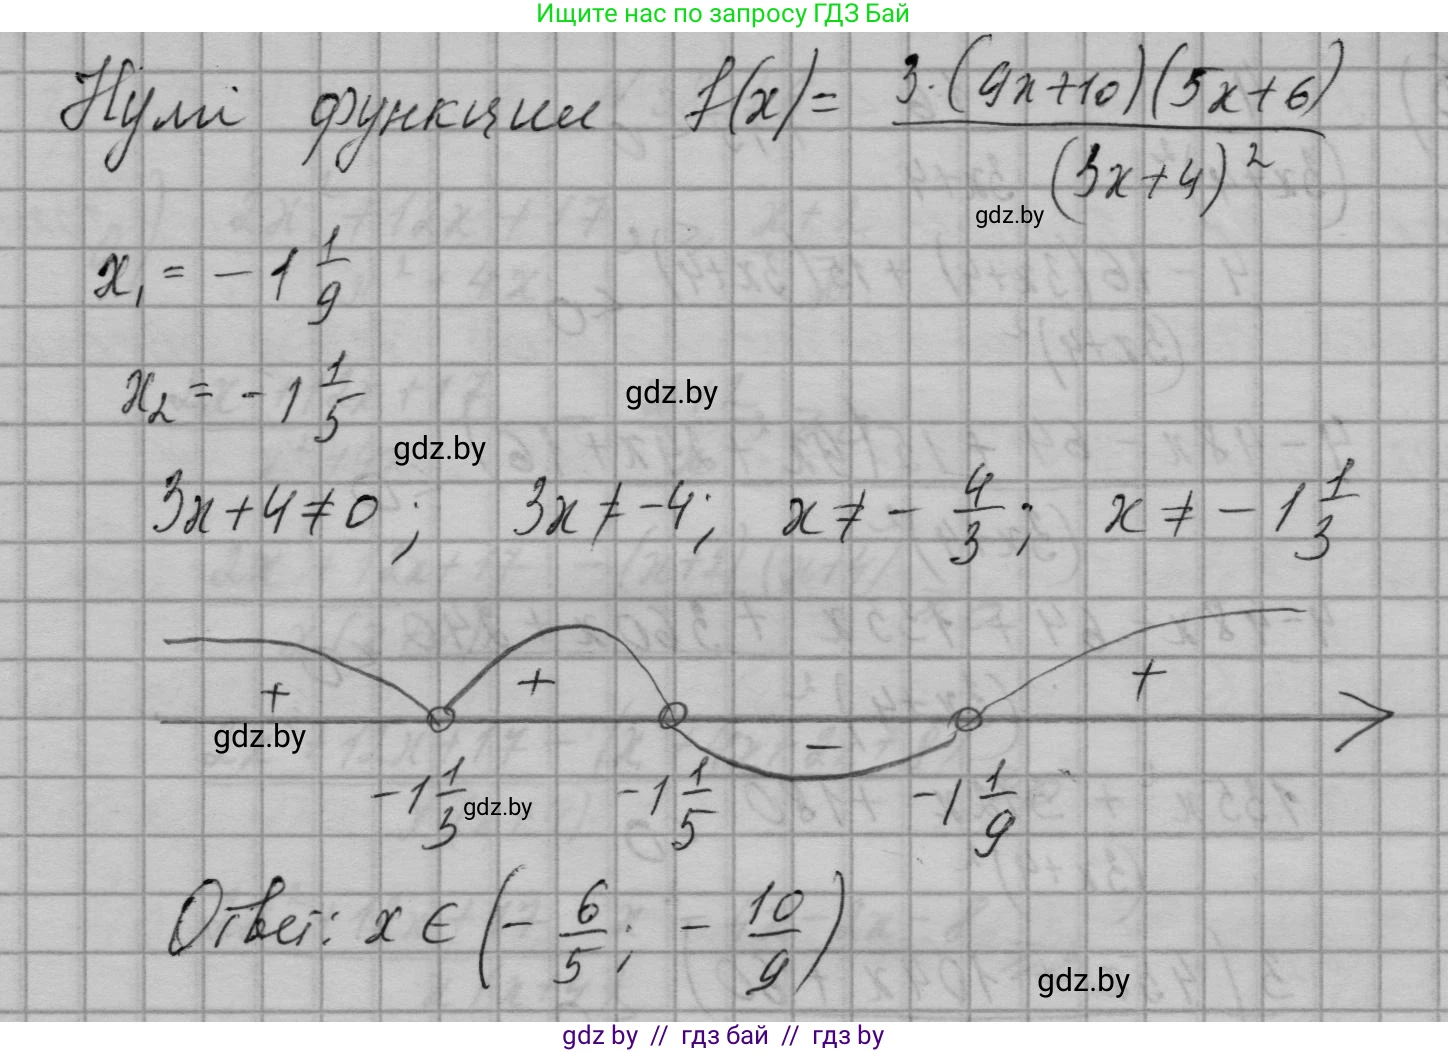 Ищите нас по запросу ГДЗ Бай
Нулі функции f(x) = 3·(9x+10)(5x+6) / (3x+4)²
gdz.by
x₁ = -1 1/9
x₂ = -1 1/5
gdz.by
gdz.by
3x+4≠0; 3x≠-4; x≠ - 4/3; x ≠ -1 1/3
+ + - +
gdz.by
-1 1/3 -1 1/5 -1 1/9
gdz.by
Ответ: x ∈ (- 6/5; - 10/9)
gdz.by
gdz.by // гдз бай // гдз by